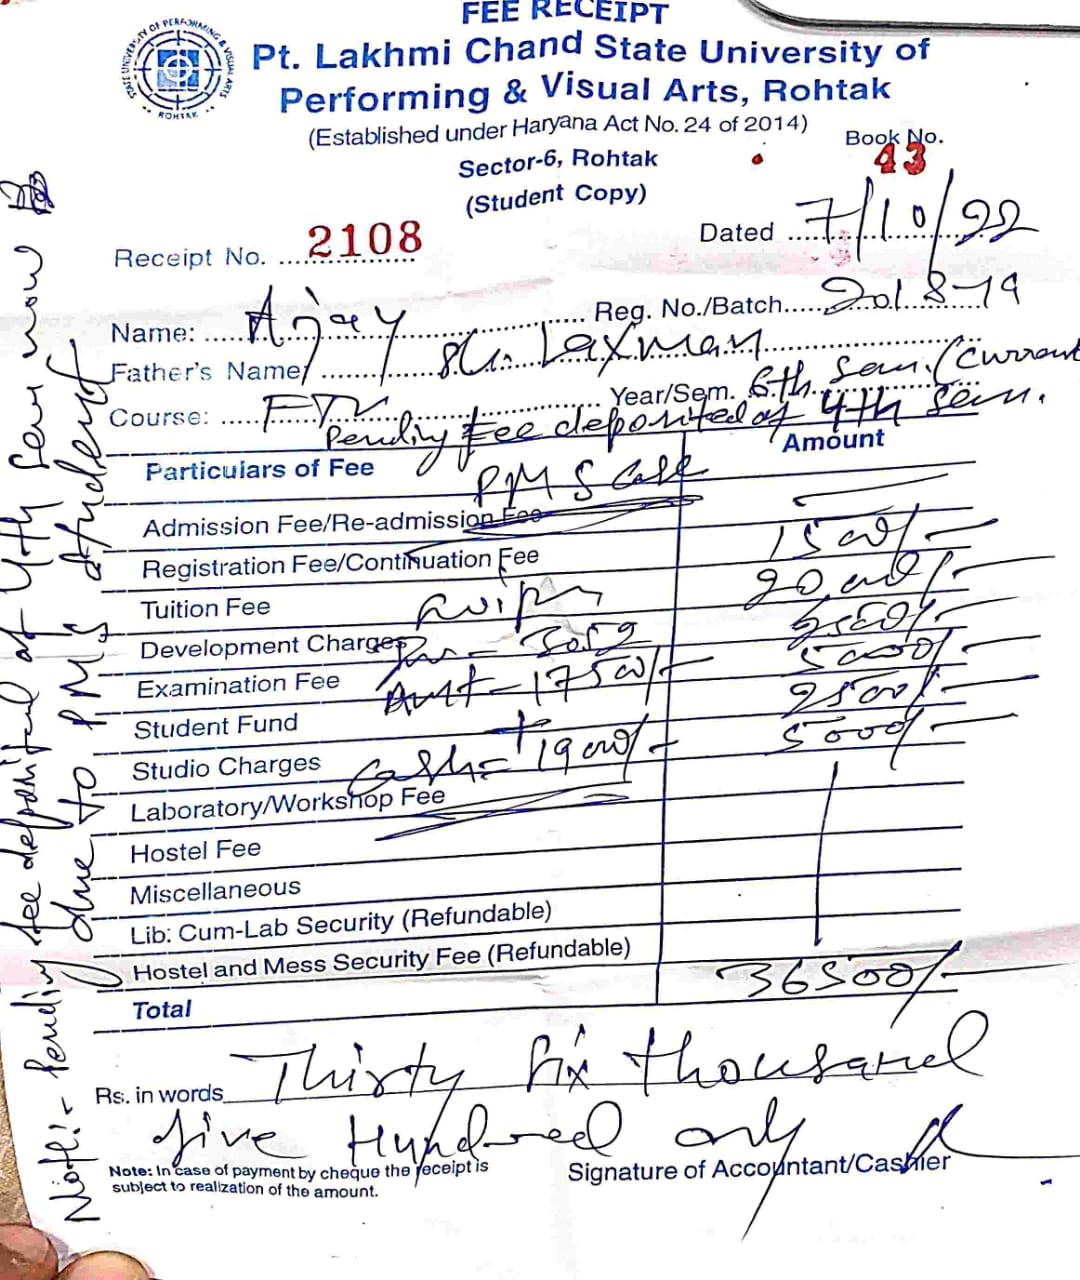 FEE RECEIPT
STATE UNIVERSITY OF PERFORMING & VISUAL ARTS
ROHTAK
Pt. Lakhmi Chand State University of
Performing & Visual Arts, Rohtak
(Established under Haryana Act No. 24 of 2014)
Sector-6, Rohtak
(Student Copy)
Book No.
43
Receipt No. 2108
Dated 7/10/22
Name: Ajay
Reg. No./Batch 2018-19
Father's Name Sh. Laxman
Course: FTV
Year/Sem. 6th Sem. (Current
Pending Fee deposited of 4th Sem.
Particulars of Fee
Amount
PMS Case
Admission Fee/Re-admission Fee
Registration Fee/Continuation Fee 1500/-
Tuition Fee 20,000/-
Development Charges 2500/-
3052
Examination Fee 5000/-
Amt - 17500/-
Student Fund 2500/-
Studio Charges 5000/-
Cash = 19000/-
Laboratory/Workshop Fee
Hostel Fee
Miscellaneous
Lib: Cum-Lab Security (Refundable)
Hostel and Mess Security Fee (Refundable)
Total 36500/-
Rs. in words Thirty Six thousand
five Hundred only
Note: In case of payment by cheque the receipt is
subject to realization of the amount.
Signature of Accountant/Cashier
Note:- Pending fee deposited of 4th Sem now
due to PMS student